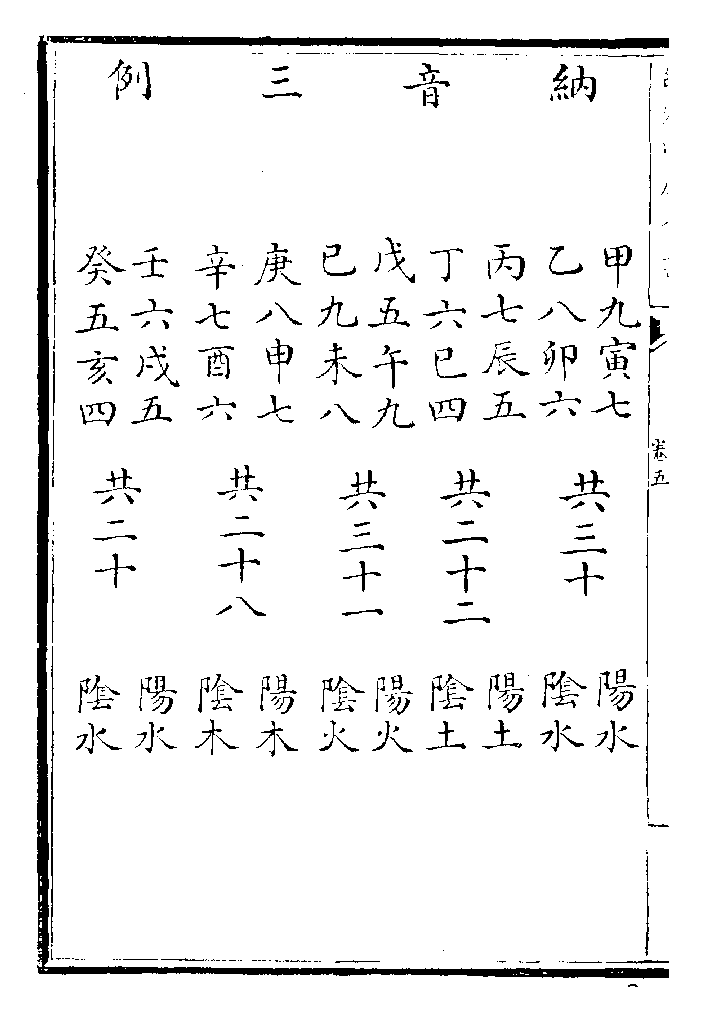 納音三例
甲九寅七
乙八卯六
共三十
陽水
陰水
丙七辰五
丁六巳四
共二十二
陽土
陰土
戊五午九
己九未八
共三十一
陽火
陰火
庚八申七
辛七酉六
共二十八
陽木
陰木
壬六戌五
癸五亥四
共二十
陽水
陰水
卷五